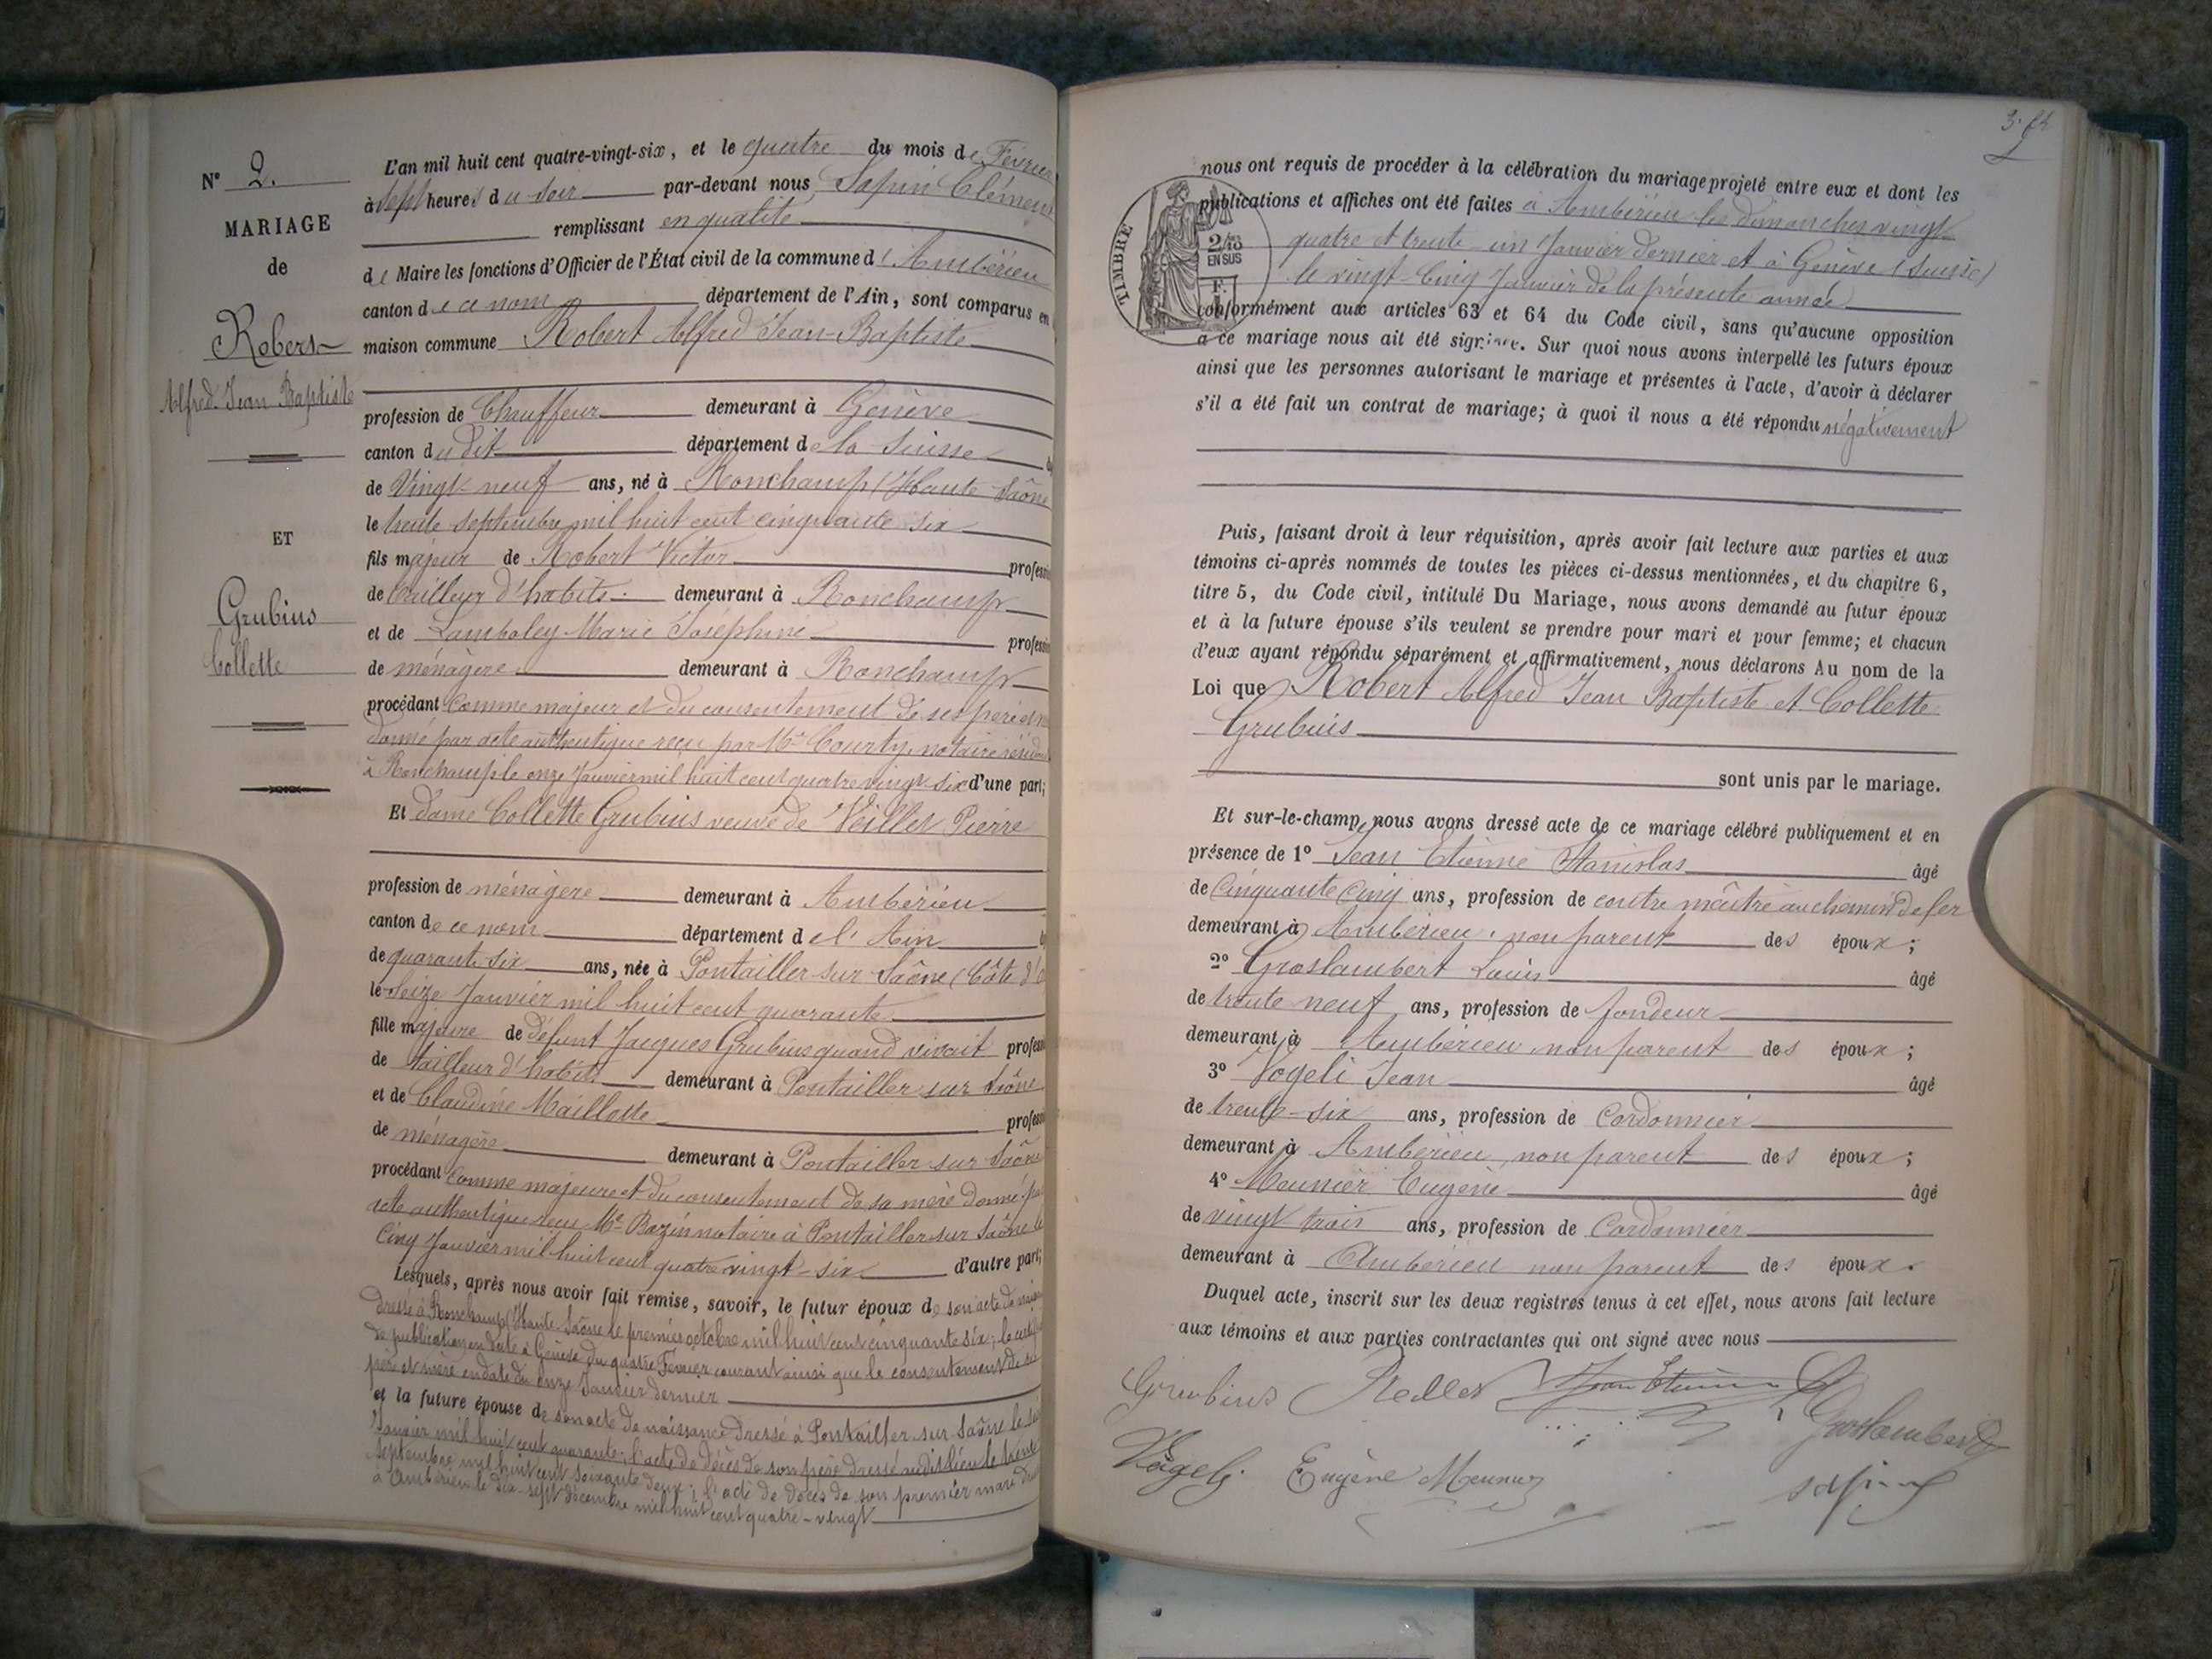 N° 2.
MARIAGE
de
Robert
Alfred Jean Baptiste
ET
Grubius
Collette
L'an mil huit cent quatre-vingt-six, et le quatre du mois de Février
à sept heures du soir par-devant nous, Sapin Clément
remplissant en qualité
de Maire les fonctions d'Officier de l'État civil de la commune d'Ambérieu
canton de ce nom département de l'Ain, sont comparus en
maison commune Robert Alfred Jean-Baptiste
profession de Chauffeur demeurant à Genève
canton du dit département de la Suisse
de Vingt-neuf ans, né à Ronchamp (Haute-Saône
le trente septembre mil huit cent cinquante six
fils majeur de Robert Victor professi
de tailleur d'habits demeurant à Ronchamp
et de Lamboley Marie Josephine professi
de ménagère demeurant à Ronchamp
procédant comme majeur et du consentement de ses père et
donné par acte authentique reçu par Me Courty, notaire résidant
à Ronchamp le onze Janvier mil huit cent quatre vingt-six d'une part;
Et dame Collette Grubius veuve de Veillet Pierre
profession de ménagère demeurant à Ambérieu
canton de ce nom département de l'Ain
de quarante-six ans, née à Pontailler-sur-Saône (Côte d'O
le Seize Janvier mil huit cent quarante
fille majeure de défunt Jacques Grubius quand vivait profess
de tailleur d'habits demeurant à Pontailler sur Saône
et de Claudine Maillotte profess
de ménagère demeurant à Pontailler sur Saône
procédant comme majeure et du consentement de sa mère donné par
acte authentique reçu Me Bazin notaire à Pontailler sur Saône le
Cinq Janvier mil huit cent quatre vingt-six d'autre part;
Lesquels, après nous avoir fait remise, savoir, le futur époux de son acte de
dressé à Ronchamp (Haute-Saône le premier octobre mil huit cent cinquante six; le certif
de publication en date à Genève du quatre Février courant ainsi que le consentement de ses
père et mère en date du onze Janvier dernier
et la future épouse de son acte de naissance dressé à Pontailler sur Saône le
Janvier mil huit cent quarante; l'acte de décès de son père dressé audit lieu le trente
septembre mil huit cent soixante deux; l'acte de décès de son premier mari
à Ambérieu le dix-sept décembre mil huit cent quatre-vingt
nous ont requis de procéder à la célébration du mariage projeté entre eux et dont les
publications et affiches ont été faites à Ambérieu les dimanches vingt
quatre et trente-un Janvier dernier et à Genève (Suisse)
le vingt-cinq Janvier de la présente année
TIMBRE
2/10
EN SUS
conformément aux articles 63 et 64 du Code civil, sans qu'aucune opposition
à ce mariage nous ait été signifiée. Sur quoi nous avons interpellé les futurs époux
ainsi que les personnes autorisant le mariage et présentes à l'acte, d'avoir à déclarer
s'il a été fait un contrat de mariage; à quoi il nous a été répondu négativement
Puis, faisant droit à leur réquisition, après avoir fait lecture aux parties et aux
témoins ci-après nommés de toutes les pièces ci-dessus mentionnées, et du chapitre 6,
titre 5, du Code civil, intitulé Du Mariage, nous avons demandé au futur époux
et à la future épouse s'ils veulent se prendre pour mari et pour femme; et chacun
d'eux ayant répondu séparément et affirmativement, nous déclarons Au nom de la
Loi que Robert Alfred Jean Baptiste et Collette
Grubuis
sont unis par le mariage.
Et sur-le-champ, nous avons dressé acte de ce mariage célébré publiquement et en
présence de 1° Jean Etienne Stanislas âgé
de cinquante cinq ans, profession de contre maître au chemin de fer
demeurant à Ambérieu, non parent des époux;
2° Groslambert Louis âgé
de trente neuf ans, profession de fondeur
demeurant à Ambérieu non parent des époux;
3° Vogeli Jean âgé
de trente-six ans, profession de Cordonnier
demeurant à Ambérieu, non parent des époux;
4° Meunier Eugène âgé
de vingt trois ans, profession de Cordonnier
demeurant à Ambérieu non parent des époux.
Duquel acte, inscrit sur les deux registres tenus à cet effet, nous avons fait lecture
aux témoins et aux parties contractantes qui ont signé avec nous
Grubius Jean Etienne
Groslambert
Vögeli Eugène Meunier Sapin